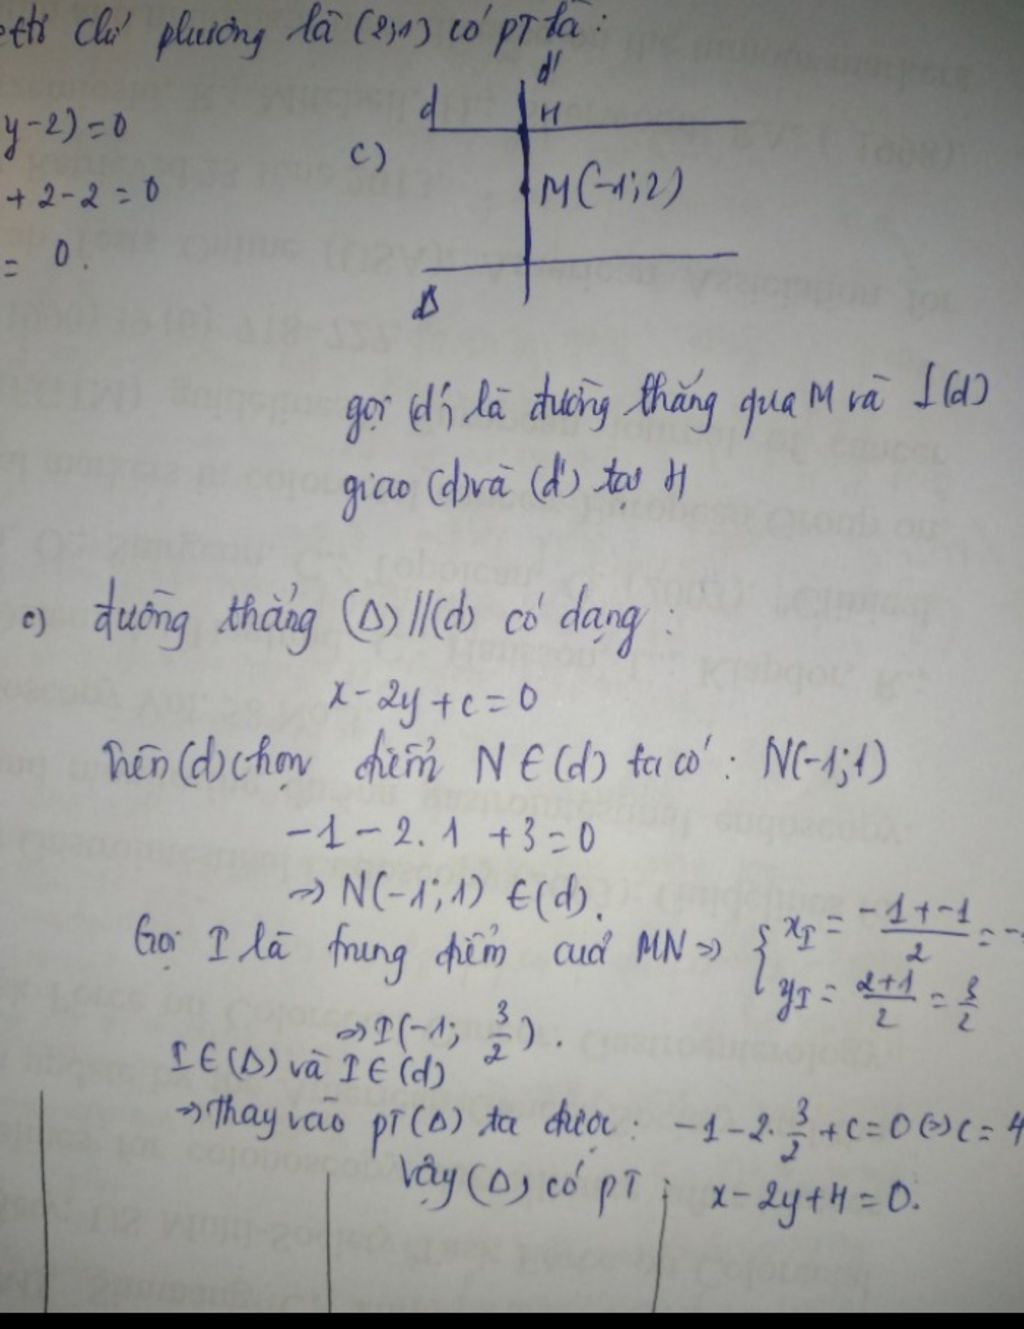 chỉ phương là (2;1) có PT là:
y-2)=0
+2-2=0
= 0.
c)
d
d'
H
M(-1;2)
Δ
gọi (d') là đường thẳng qua M và ⊥(d)
giao (d) và (d') tại H
c) đường thẳng (Δ)//(d) có dạng:
x-2y+c=0
Trên (d) chọn điểm N∈(d) ta có: N(-1;1)
-1-2.1+3=0
⇒ N(-1;1) ∈(d).
Gọi I là trung điểm của MN ⇒ { x_I = (-1+-1)/2 = -
y_I = (2+1)/2 = 3/2
⇒ I(-1; 3/2).
I∈(Δ) và I∈(d)
⇒ Thay vào PT(Δ) ta được: -1-2.3/2+c=0 ⇔ c=4
Vậy (Δ) có PT: x-2y+4=0.